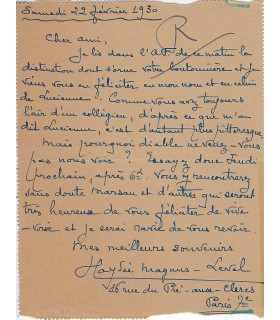 Samedi 22 février 1930
R
Cher ami,
Je lis dans l'A.F. de ce matin la
distinction dont s'orne votre boutonnière et je
viens vous en féliciter en mon nom et en celui
de Lucienne. Comme vous avez toujours
l'air d'un collégien, d'après ce que m'en
dit Lucienne, c'est d'autant plus pittoresque.
Mais pourquoi diable ne venez-vous
pas nous voir ? Essayez donc Jeudi
prochain, après 6h. Vous y rencontrerez
sans doute Marsan et d'autres qui seront
très heureux de vous féliciter de vive-
voix et je serai ravie de vous revoir.
Mes meilleurs souvenirs
Haydée Magnus-Leval
16 rue du Pré-aux-Clercs
Paris 7e